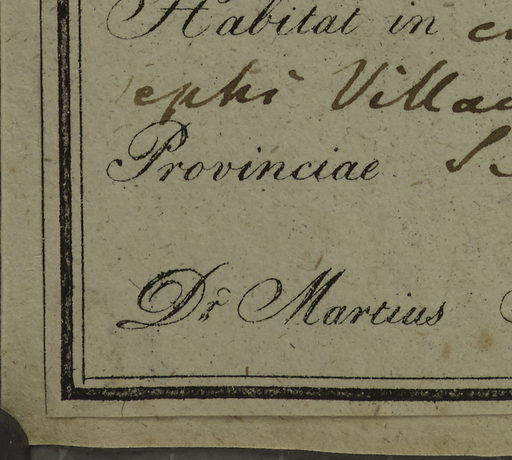 Habitat in
ephi Villa
Provinciae
Dr. Martius